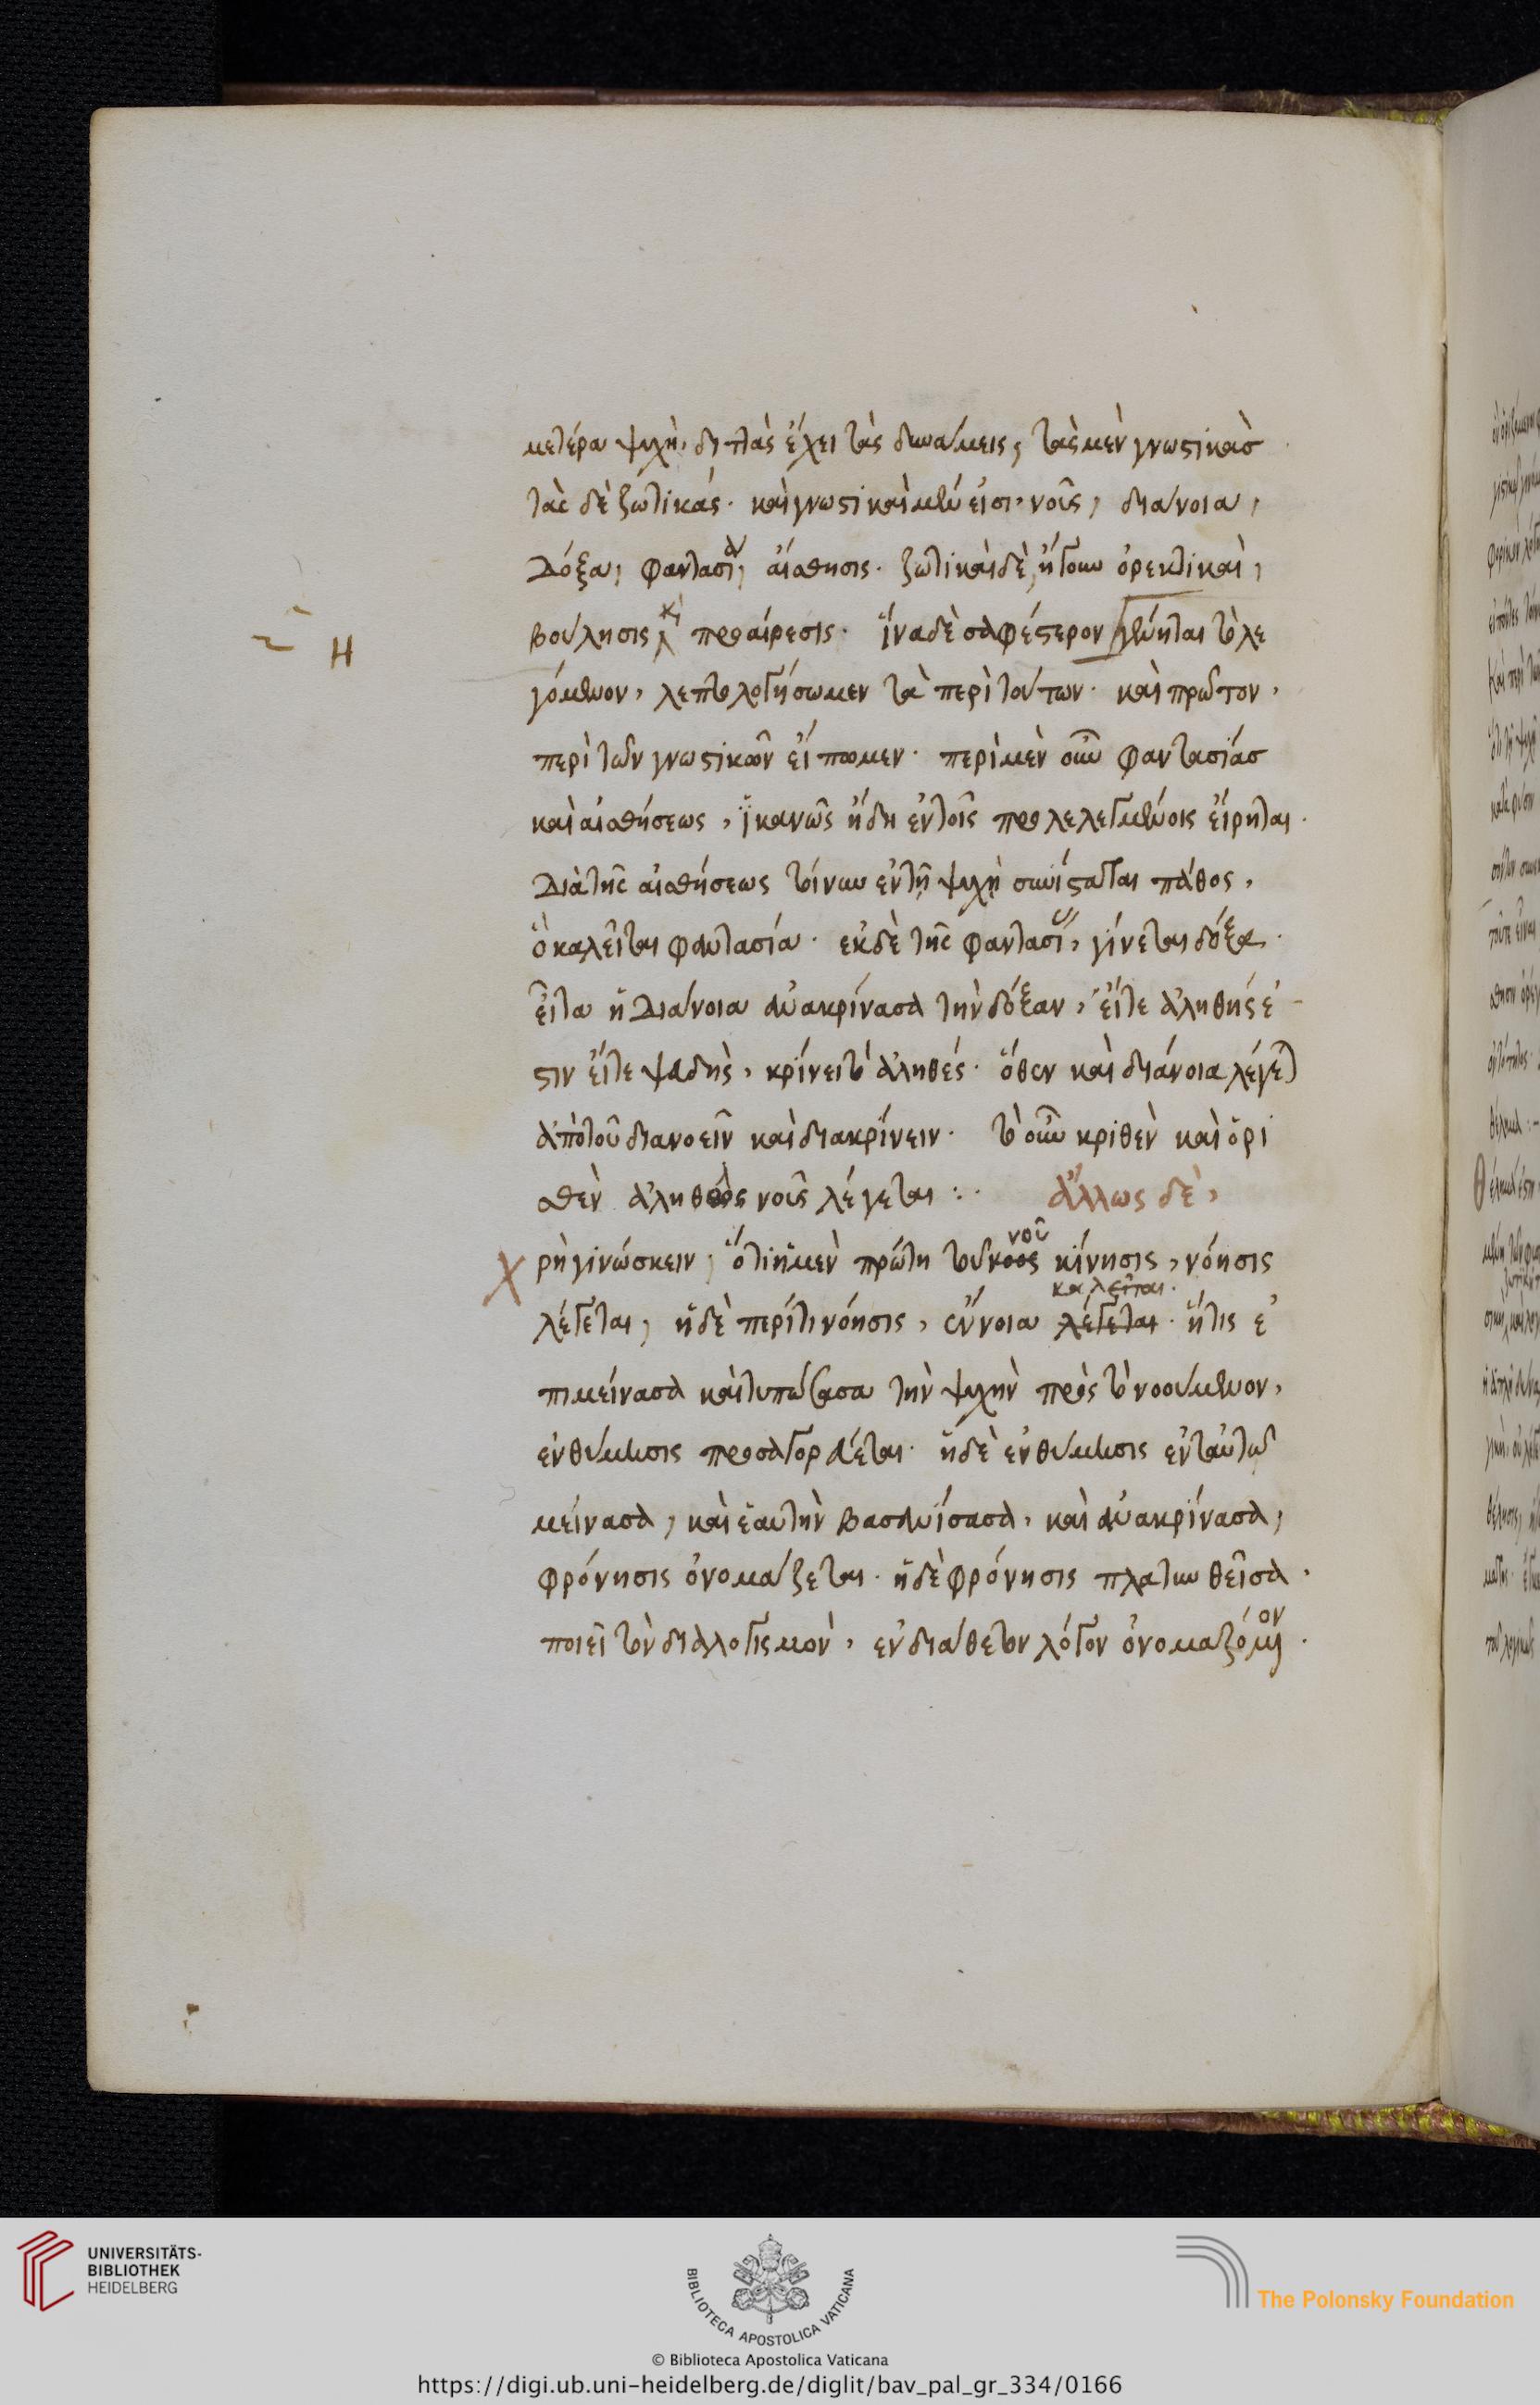 μετέρα ψυχὴ, διπλὰς ἔχει τὰς δυνάμεις, τὰς μὲν γνωστικὰσ
τὰς δὲ ζωτικάς. καὶ γνωστικαὶ μέν εἰσι, νοῦς, διάνοια,
Δόξα, φαντασία, αἴσθησις. ζωτικαὶ δὲ, ἤγουν ὀρεκτικαὶ,
βούλησις κὶ προαίρεσις. ἵνα δὲ σαφέστερον γένηται τὸ λε
γόμενον, λεπτολογήσωμεν τὰ περὶ τούτων. καὶ πρῶτον,
περὶ τῶν γνωστικῶν εἴπωμεν. περὶ μὲν οὖν φαντασίασ
καὶ αἰσθήσεως, ἱκανῶς ἤδη ἐν τοῖς προλελεγμένοις εἴρηται.
Διὰ τῆς αἰσθήσεως τοίνυν ἐν τῆ ψυχῆ συνίσταται πάθος,
ὃ καλεῖται φαντασία. ἐκ δὲ τῆς φαντασίας, γίνεται δόξα.
εἶτα ἡ Διάνοια ἀνακρίνασα τὴν δόξαν, εἴτε ἀληθής ἐ
στιν εἴτε ψευδὴς, κρίνει τὸ ἀληθές. ὅθεν καὶ διάνοια λέγεται
ἀπὸ τοῦ διανοεῖν καὶ διακρίνειν. τὸ οὖν κριθὲν καὶ ὁρι
σθὲν ἀληθὲς νοῦς λέγεται:. ἄλλως δὲ,
Χρὴ γινώσκειν, ὅτι ἡ μὲν πρώτη τοῦ νοὸς νοῦ κίνησις, νόησις
λέγεται, ἡ δὲ περί τι νόησις, ἔννοια λέγεται καλεῖται. ἥτις ἐ
πιμείνασα καὶ τυπώσασα τὴν ψυχὴν πρὸς τὸ νοούμενον,
ἐνθύμησις προσαγορεύεται. ἡ δὲ ἐνθύμησις ἐν ταὐτῶ
μείνασα, καὶ ἑαυτὴν βασανίσασα, καὶ ἀνακρίνασα,
φρόνησις ὀνομάζεται. ἡ δὲ φρόνησις πλατυνθεῖσα,
ποιεῖ τὸν διαλογισμὸν, ἐνδιάθετον λόγον ὀνομαζόμενον.
Η
UNIVERSITÄTS-
BIBLIOTHEK
HEIDELBERG
BIBLIOTECA APOSTOLICA VATICANA
The Polonsky Foundation
© Biblioteca Apostolica Vaticana
https://digi.ub.uni-heidelberg.de/diglit/bav_pal_gr_334/0166